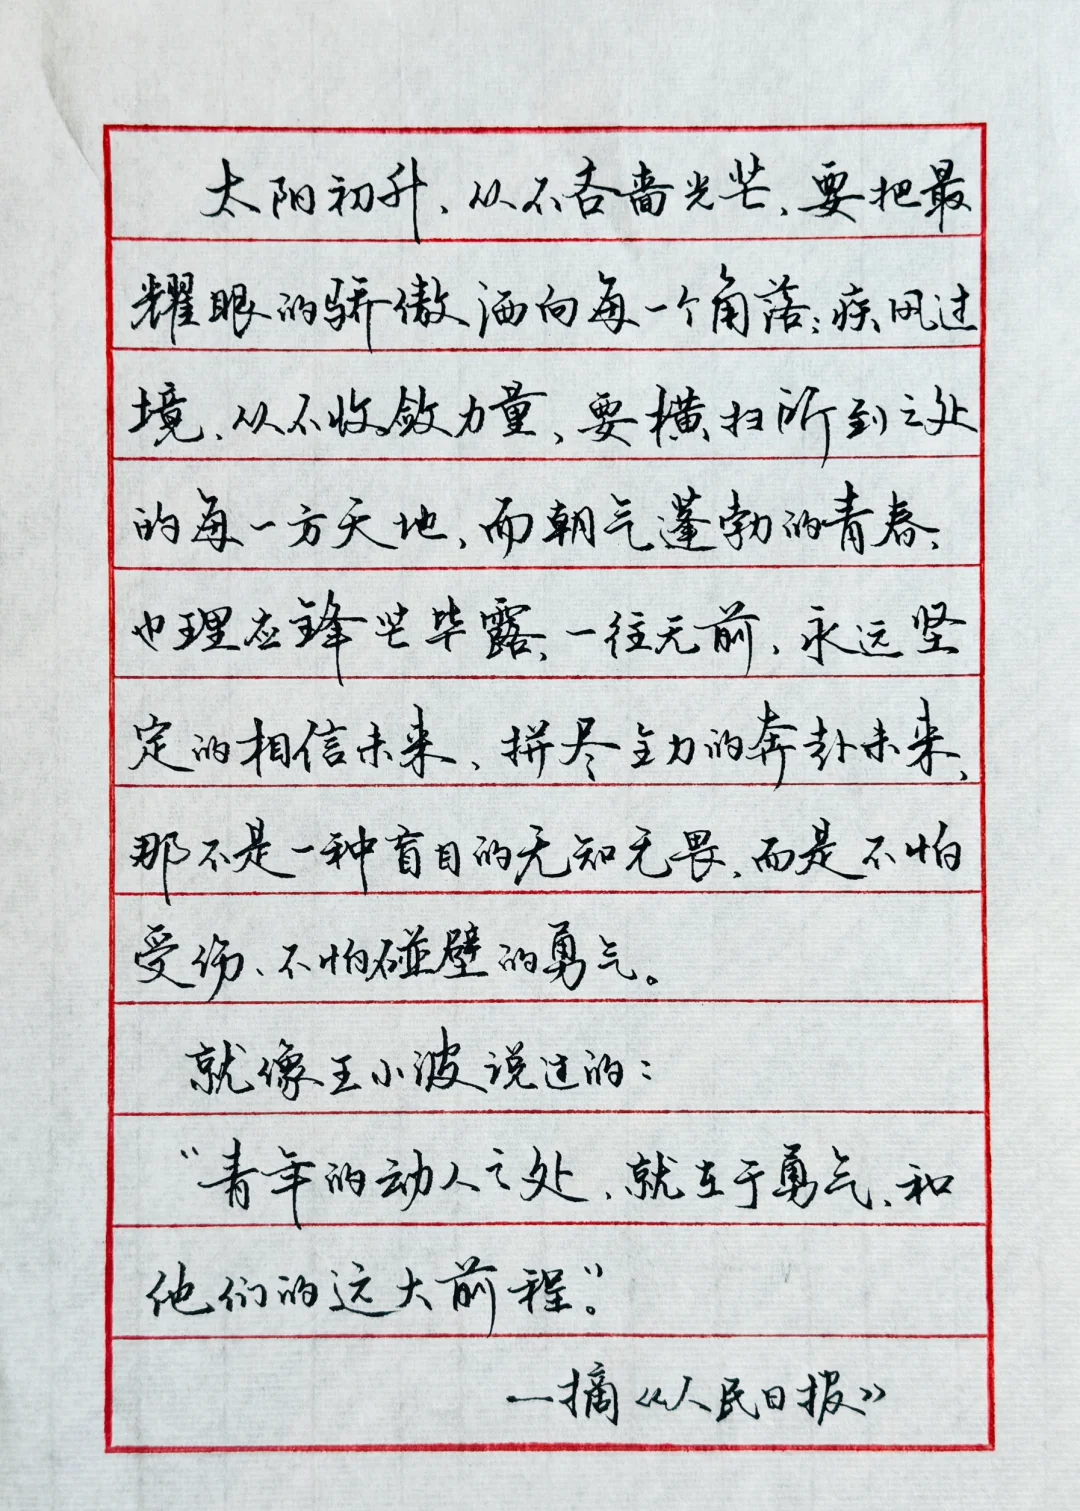 太阳初升，从不吝啬光芒，要把最
耀眼的骄傲洒向每一个角落；疾风过
境，从不收敛力量，要横扫所到之处
的每一方天地，而朝气蓬勃的青春，
也理应锋芒毕露，一往无前，永远坚
定的相信未来，拼尽全力的奔赴未来，
那不是一种盲目的无知无畏，而是不怕
受伤、不怕碰壁的勇气。
就像王小波说过的：
“青年的动人之处，就在于勇气，和
他们的远大前程”。
—摘《人民日报》